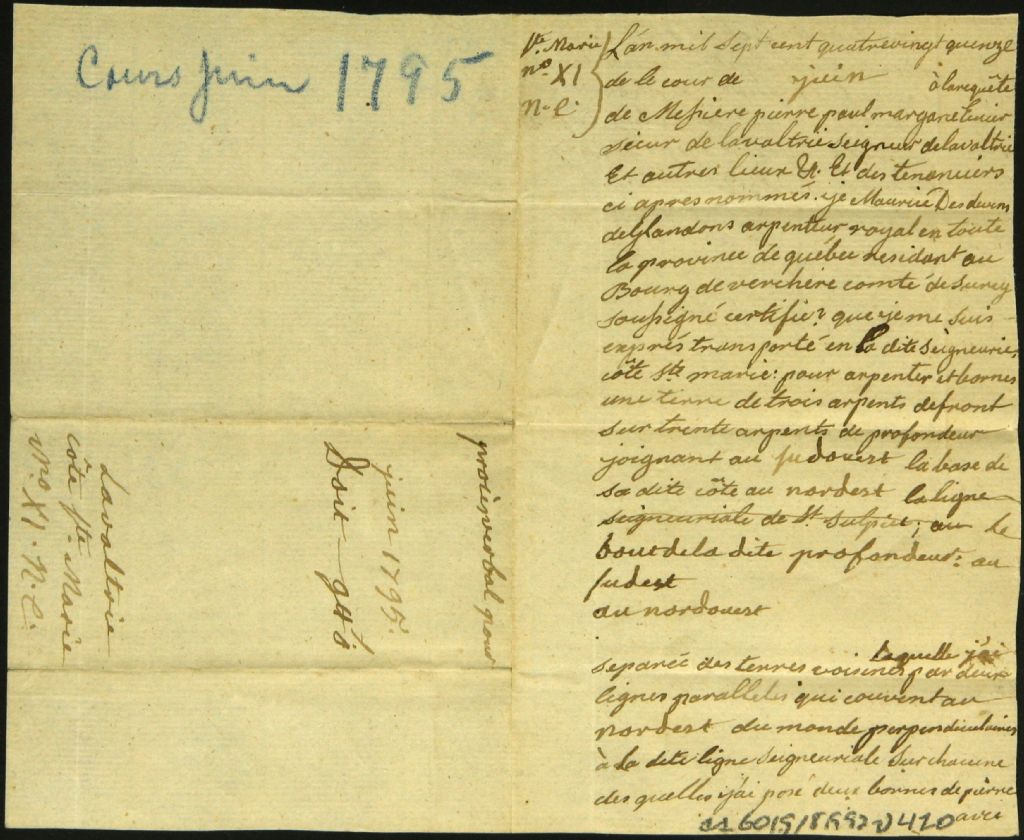 Cours juin 1795
procès verbal pour
juin 1795.
Doit 9# 8
Lavaltrie
côte Ste. Marie
no. XI. N.C.
Ste. Marie
no XI
N.C.
L'an mil sept cent quatrevingt quenze
de le cour de juin à la requête
de Messiere pierre paul margane
sieur de lavaltrie seigneur de lavaltrie
Et autres lieux &. Et des tenanciers
ci apres nommés. je Maurice Desdevens
deglandons arpenteur royal en toute
la province de québec residant au
Bourg de verchère comté de surey
soussigné certifie que je me suis
exprés transporté en la dite seigneurie,
côte Ste marie: pour arpenter et bornes
une terre de trois arpents de front
sur trente arpents de profondeur
joignant au sudouest la base de
sa dite côte au nordest la ligne
seigneuriale de St sulpice; au le
bout de la dite profondeur: au
sudest
au nordouest
laquelle j'ai
separée des terres voisines par deux
lignes paralleles qui couvent au
nordest du monde perpendiculaires
à la dite ligne seigneuriale sur chacune
des quelles j'ai posé deux bornes de pierre
avec
6015/